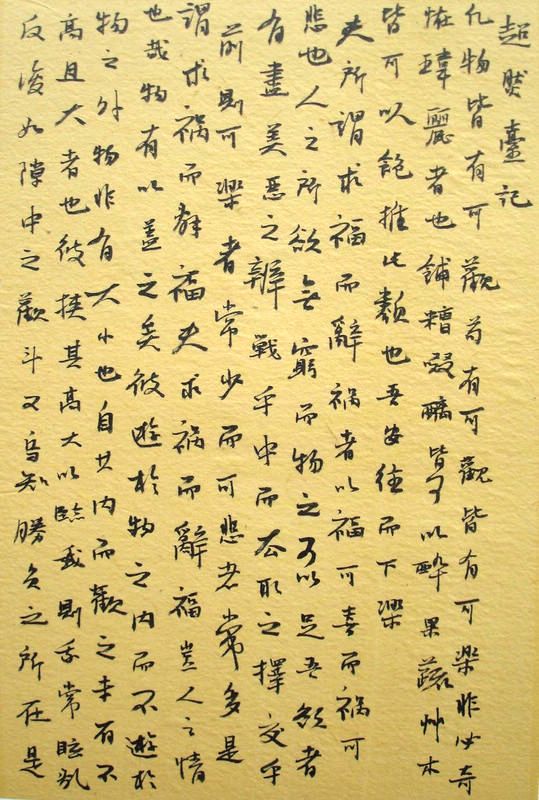 超然臺記
凡物皆有可觀苟有可觀皆有可樂非必奇
怪瑋麗者也餔糟啜醨皆可以醉果蔬艸木
皆可以飽推此類也吾安往而不樂
夫所謂求福而辭禍者以福可喜而禍可
悲也人之所欲無窮而物之可以足吾欲者
有盡美惡之辨戰乎中而去取之擇交乎
前則可樂者常少而可悲者常多是
謂求禍而辭福夫求禍而辭福豈人之情
也哉物有以蓋之矣彼遊於物之內而不遊於
物之外物非有大小也自其內而觀之未有不
高且大者也彼挾其高大以臨我則我常眩亂
反復如隙中之觀斗又烏知勝負之所在是